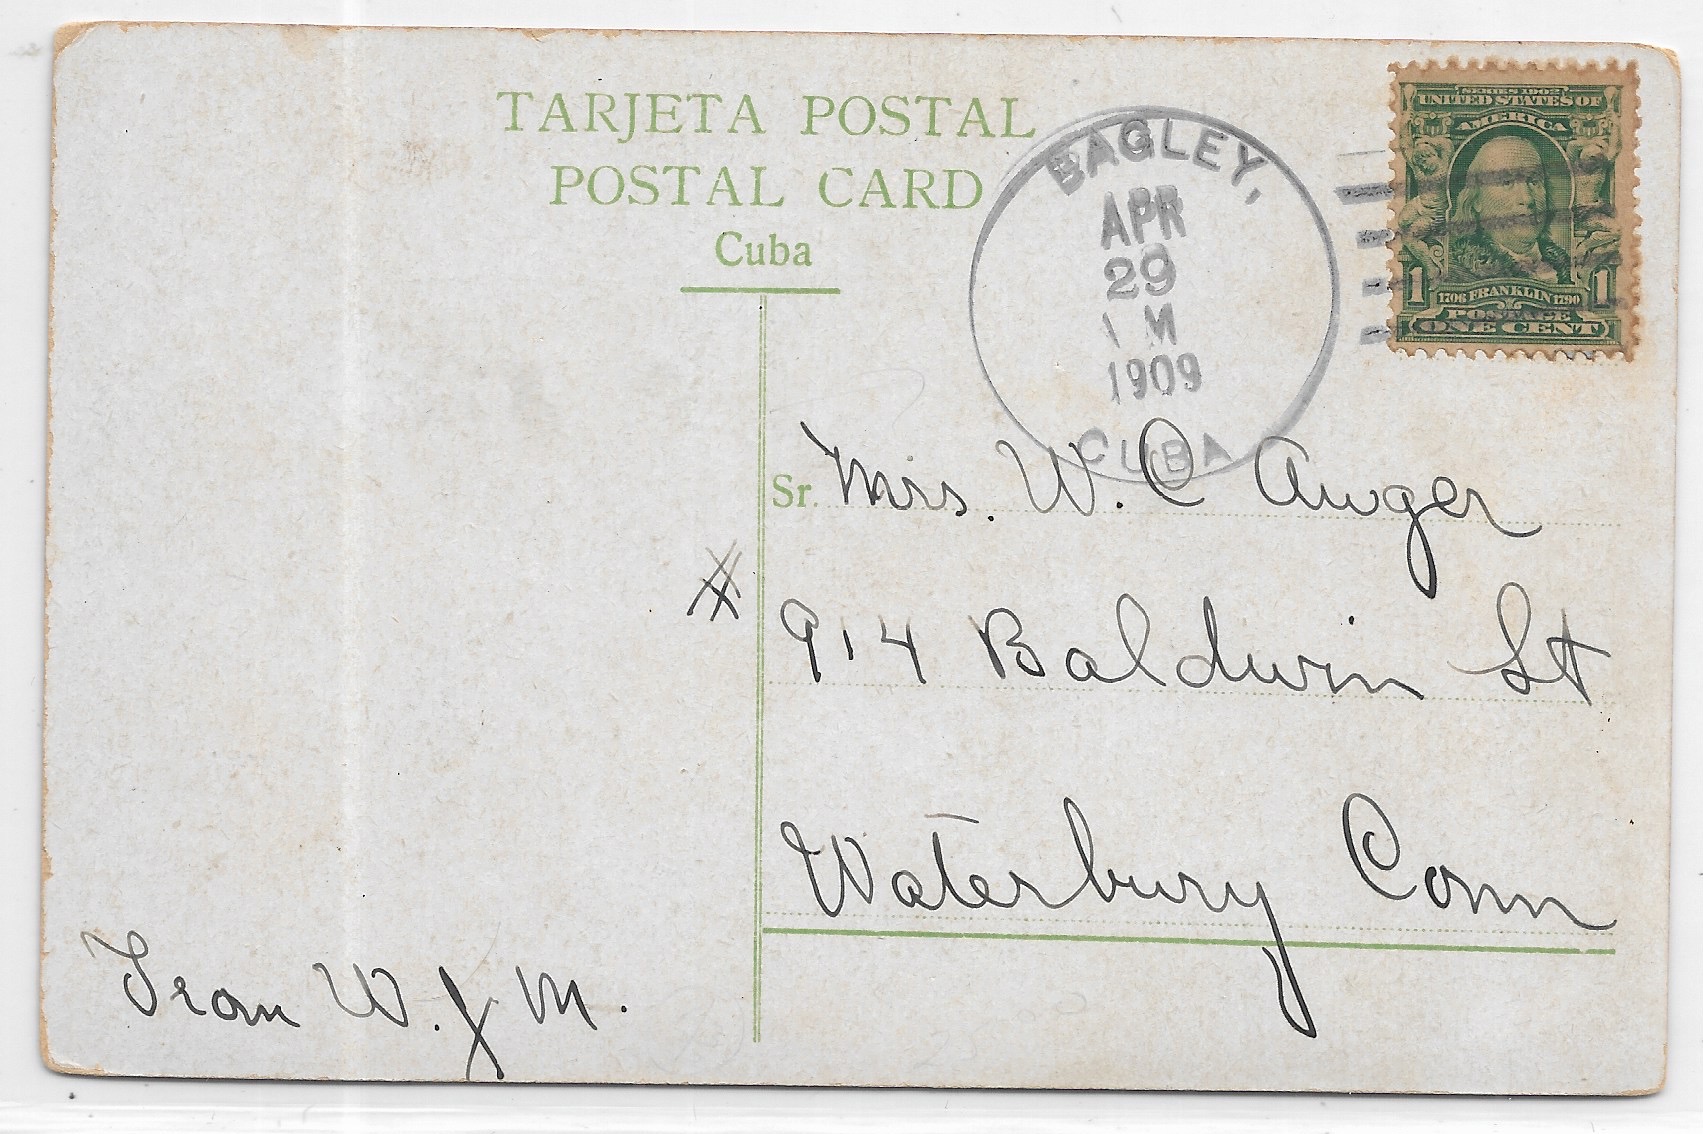 TARJETA POSTAL
POSTAL CARD
Cuba
BAGLEY,
APR
29
M
1909
CUBA
SERIES 1902
UNITED STATES OF
AMERICA
1 1706 FRANKLIN 1790 1
POSTAGE
ONE CENT
Sr. Mrs. W. C Auger
# 914 Baldwin St
Waterbury Conn
From W. J M.